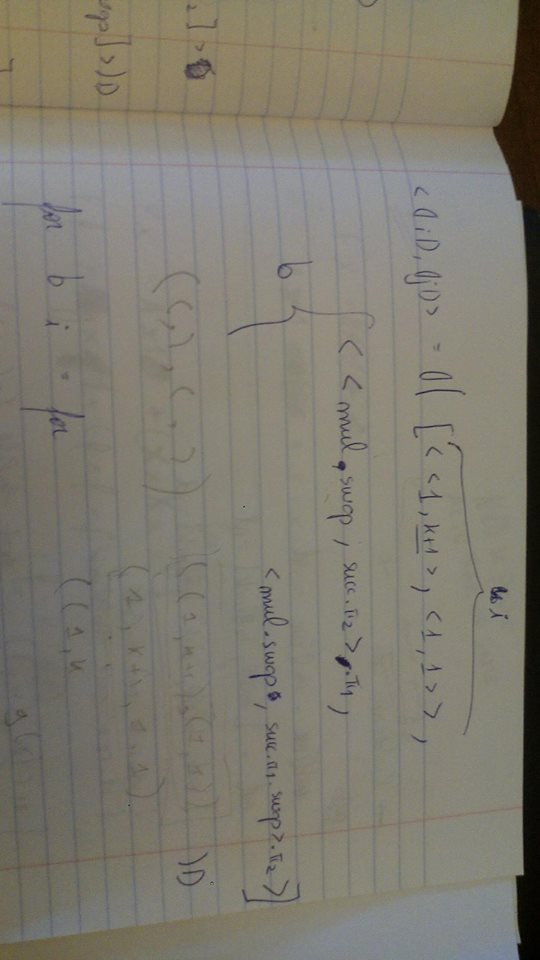 i
<(|i|), (|j|)> = (|( [< <1, k+1>, <1, 1> >,
< < mul.swap, succ.π2>.π1,
b
<mul.swap, succ.π1.swap>.π2>]
2]>
( ( , ) , ( , ) ) ( (1, k+1), (1, 1)) )|)
(1, k+1, 1, 1)
wap]>)|)
((1, k
for b i = for
]
g(